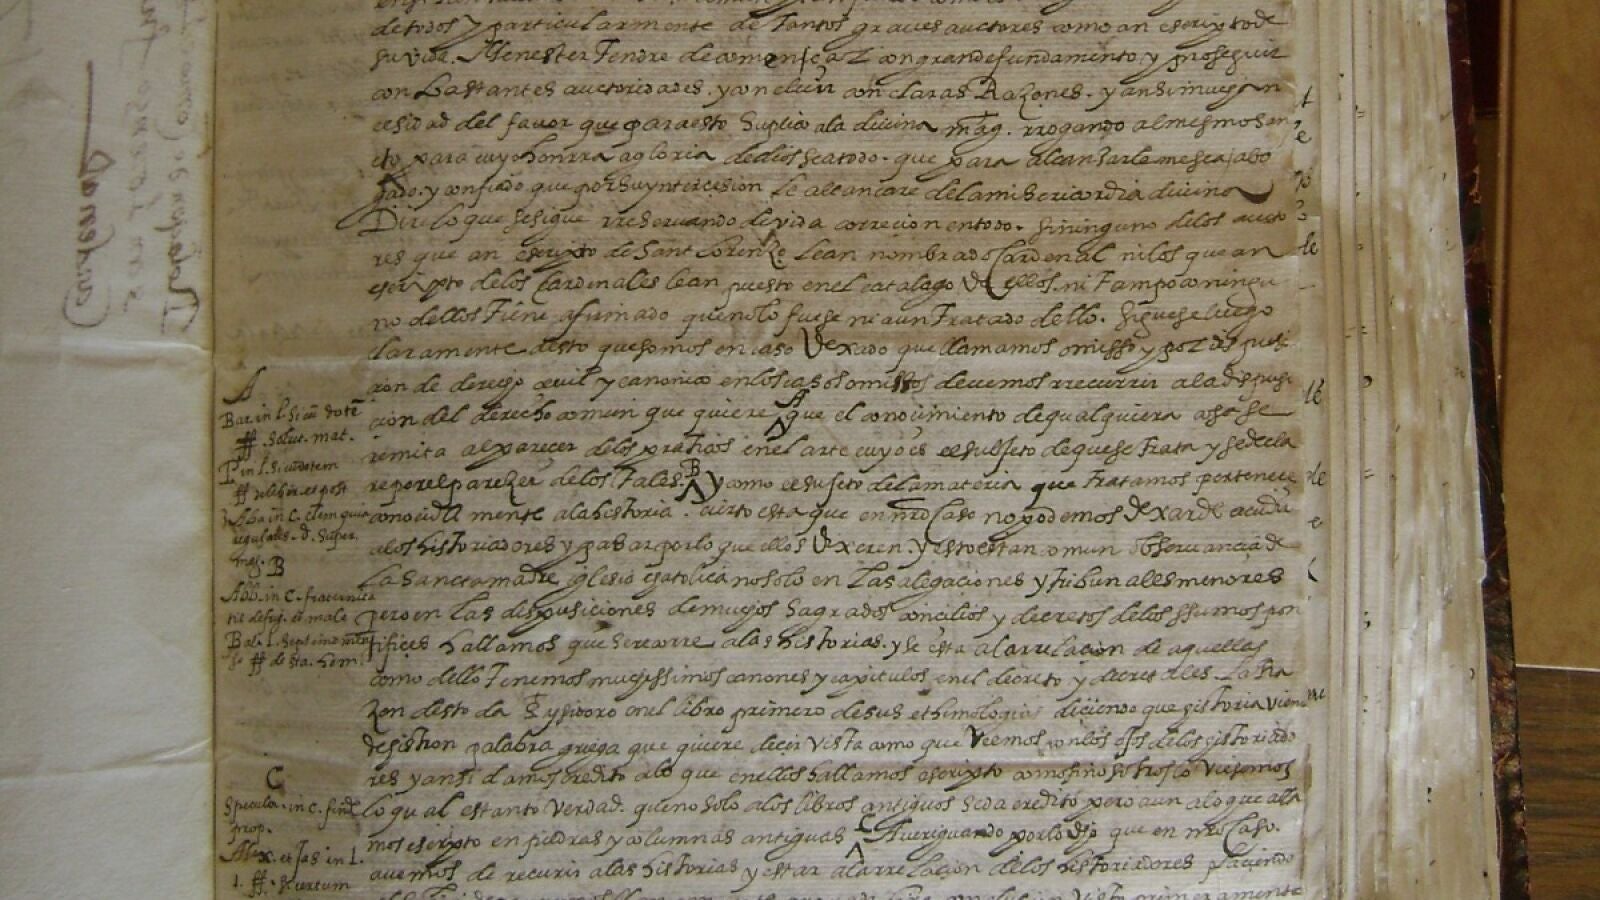 de todos y particularmente de tantos graves auctores como an escripto de
su vida. Menester tendre de començar con grande fundamento y proseguir
con bastantes auctoridades. y concluir con claras Razones. y ansi mucha ne
cesidad del favor que para esto suplico ala divina mag. rrogando al mesmo san
cto para cuyo honrra a gloria de dios sea todo. que para alcansarle me sea abo
gado. y confiado que por su yntercesion le alcançare dela misericordia divina
Dire lo que se sigue rreservando devida correcion en todo. Si ninguno delos aucto
res que an escripto de Sant Lorenzo lean nombrado Cardenal ni los que an
escripto delos Cardenales lean puesto en el catalago de ellos. ni tampoco ningu
no dellos tiene afirmado que no lo fuese ni aun tratado dello. Siguese luego
claramente desto que somos en caso dexado que llamamos omisso y por dispusi
cion de derecho civil y canonico en los casos omissos devemos rrecurrir ala dispusi
cion del derecho comun que quiere que el conocimiento de qualquiera cosa se
remita al parecer delos praticos en el arte cuyo es el subjeto de que se trata y se decla
re por el parezer delos tales. y como el sujeto dela materia que tratamos pertenece
conocidamente ala historia. cierto esta que en nro Caso no podemos dexar de acudir
alos historiadores y pasar por lo que ellos dixeren. y esto es tan comun observancia de
la sancta madre iglesia catolica no solo en las alegaciones y tribunales menores
pero en las dispusiciones de muchos sagrados concilios y decretos delos ssumos pon
tifices hallamos que se recorre alas historias. y se esta ala rrelacion de aquellas
como dello tenemos muchissimos canones y capitulos en el decreto y decretales. La Ra
zon desto da S. ysidoro en el libro primero de sus ethimologias diciendo que historia viene
de histron palabra griega que quiere decir vista como que veemos con los ojos delos historiado
res y ansi damos credito alo que en ellos hallamos escripto como si nosotros lo viesemos
lo qual es tanto verdad. que no solo alos libros antiguos se da credito pero aun alo que alla
mos escripto en piedras y columnas antiguas Averiguando por lo dicho que en nro Caso.
avemos de recurir alas historias y estar ala rrelacion delos historiadores haciendo
A
Bar. in l. si cu dote
ff. solut. mat.
in l. si cu dotem
Abb. in C. cum quia
regulares. d. super.
mag. B
Abb. in C. fraternita
tis de frig. et male
Bal. l. septimo mense
ff de sta. hom.
C
Specula. in C.
prop.
Alex. et Jas in l.
1. ff. si certum